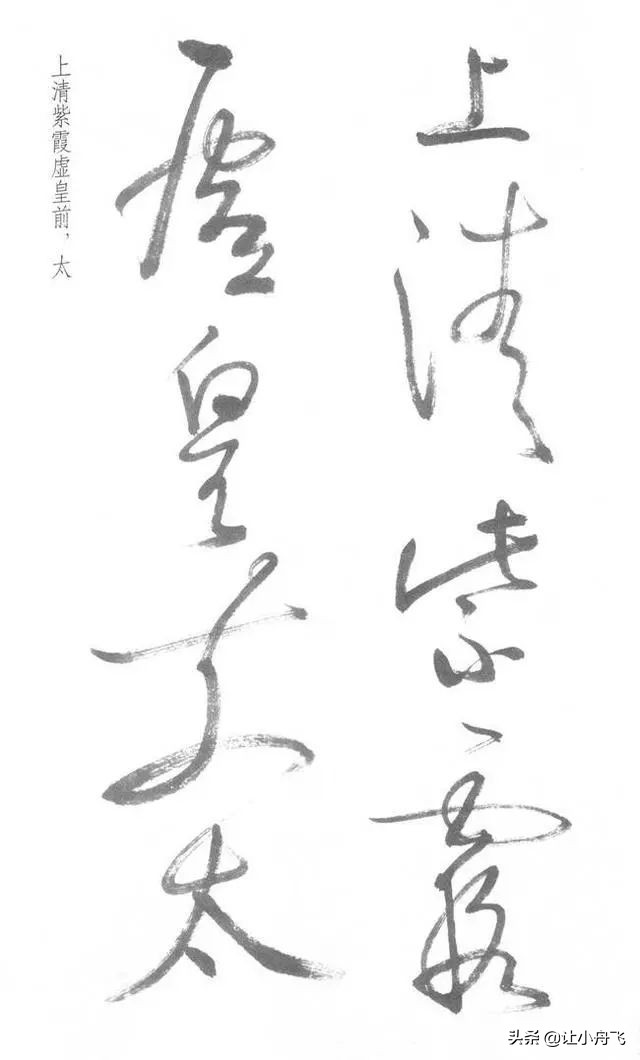 上清紫霞
虚皇前太
上清紫霞虚皇前，太
头条 @让小舟飞